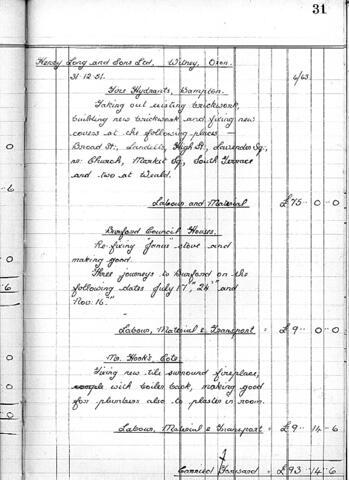 31
Henry Long and Sons Ltd., Witney, Oxon.
31.12.51. 4/63.
Fire Hydrants, Bampton.
Taking out existing brickwork,
building new brickwork and fixing new
covers at the following places —
Broad St., Landells, High St., Lavender Sq.,
nr. Church, Market Sq., South Terrace
and two at Weald.
Labour and Material £75 0 0
Burford Council Houses.
Re-fixing "Janus" stove and
making good.
Three journeys to Burford on the
following dates July 17", 24" and
Nov: 16."
Labour, Material & Transport = £9 0 0
Mr. Hook's, Cote.
Fixing new tile surround fireplace,
with boiler back, making good
for plumbers also to plaster in room.
Labour, Material & Transport = £9 14 6
Carried Forward £93 14 6
0
6
0
6
0
0
0